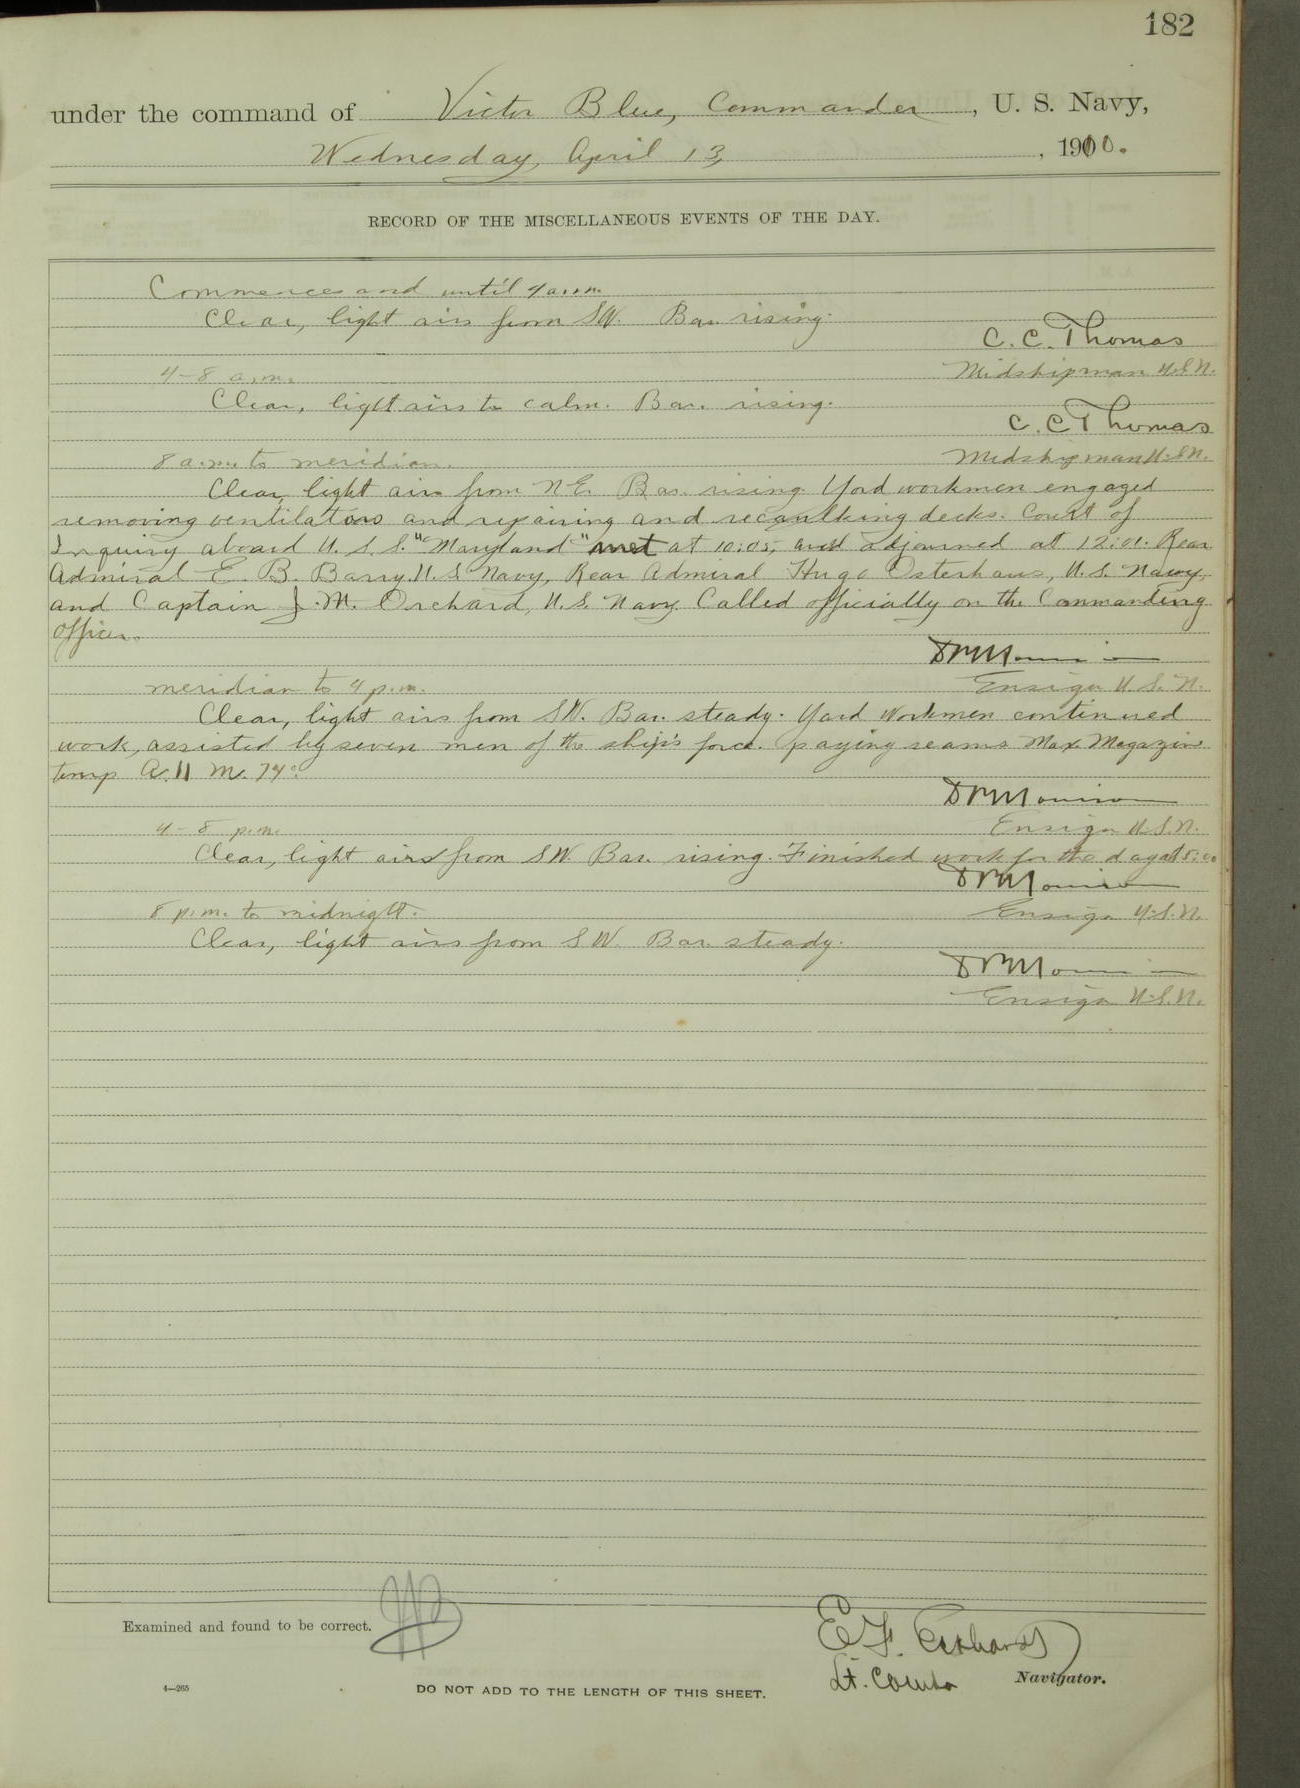 182
under the command of Victor Blue, Commander, U. S. Navy,
Wednesday, April 13, 1910.
RECORD OF THE MISCELLANEOUS EVENTS OF THE DAY.
Commences and until 4 a.m.
Clear, light airs from SW. Bar. rising.
C. C. Thomas
Midshipman U.S.N.
4-8 a.m.
Clear, light airs to calm. Bar. rising.
C. C. Thomas
Midshipman U.S.N.
8 a.m. to meridian.
Clear, light airs from N.E. Bar. rising. Yard workmen engaged
removing ventilators and repairing and recaulking decks. Court of
Inquiry aboard U. S. S. "Maryland" met at 10:05, and adjourned at 12:01. Rear
Admiral E. B. Barry, U.S. Navy, Rear Admiral Hugo Osterhaus, U.S. Navy,
and Captain J. M. Orchard, U.S. Navy. Called officially on the Commanding
Officer.
Ensign U.S.N.
meridian to 4 p.m.
Clear, light airs from SW. Bar. steady. Yard workmen continued
work, assisted by seven men of the ship's force. paying seams Max. Magazine
temp A. 11 M. 74°.
Ensign U.S.N.
4-8 p.m.
Clear, light airs from SW. Bar. rising. Finished work for the day at 5:00
Ensign U.S.N.
8 p.m. to midnight.
Clear, light airs from SW. Bar. steady.
Ensign U.S.N.
Examined and found to be correct.
E. F. Eckhardt
Lt. Comdr Navigator.
4—265
DO NOT ADD TO THE LENGTH OF THIS SHEET.